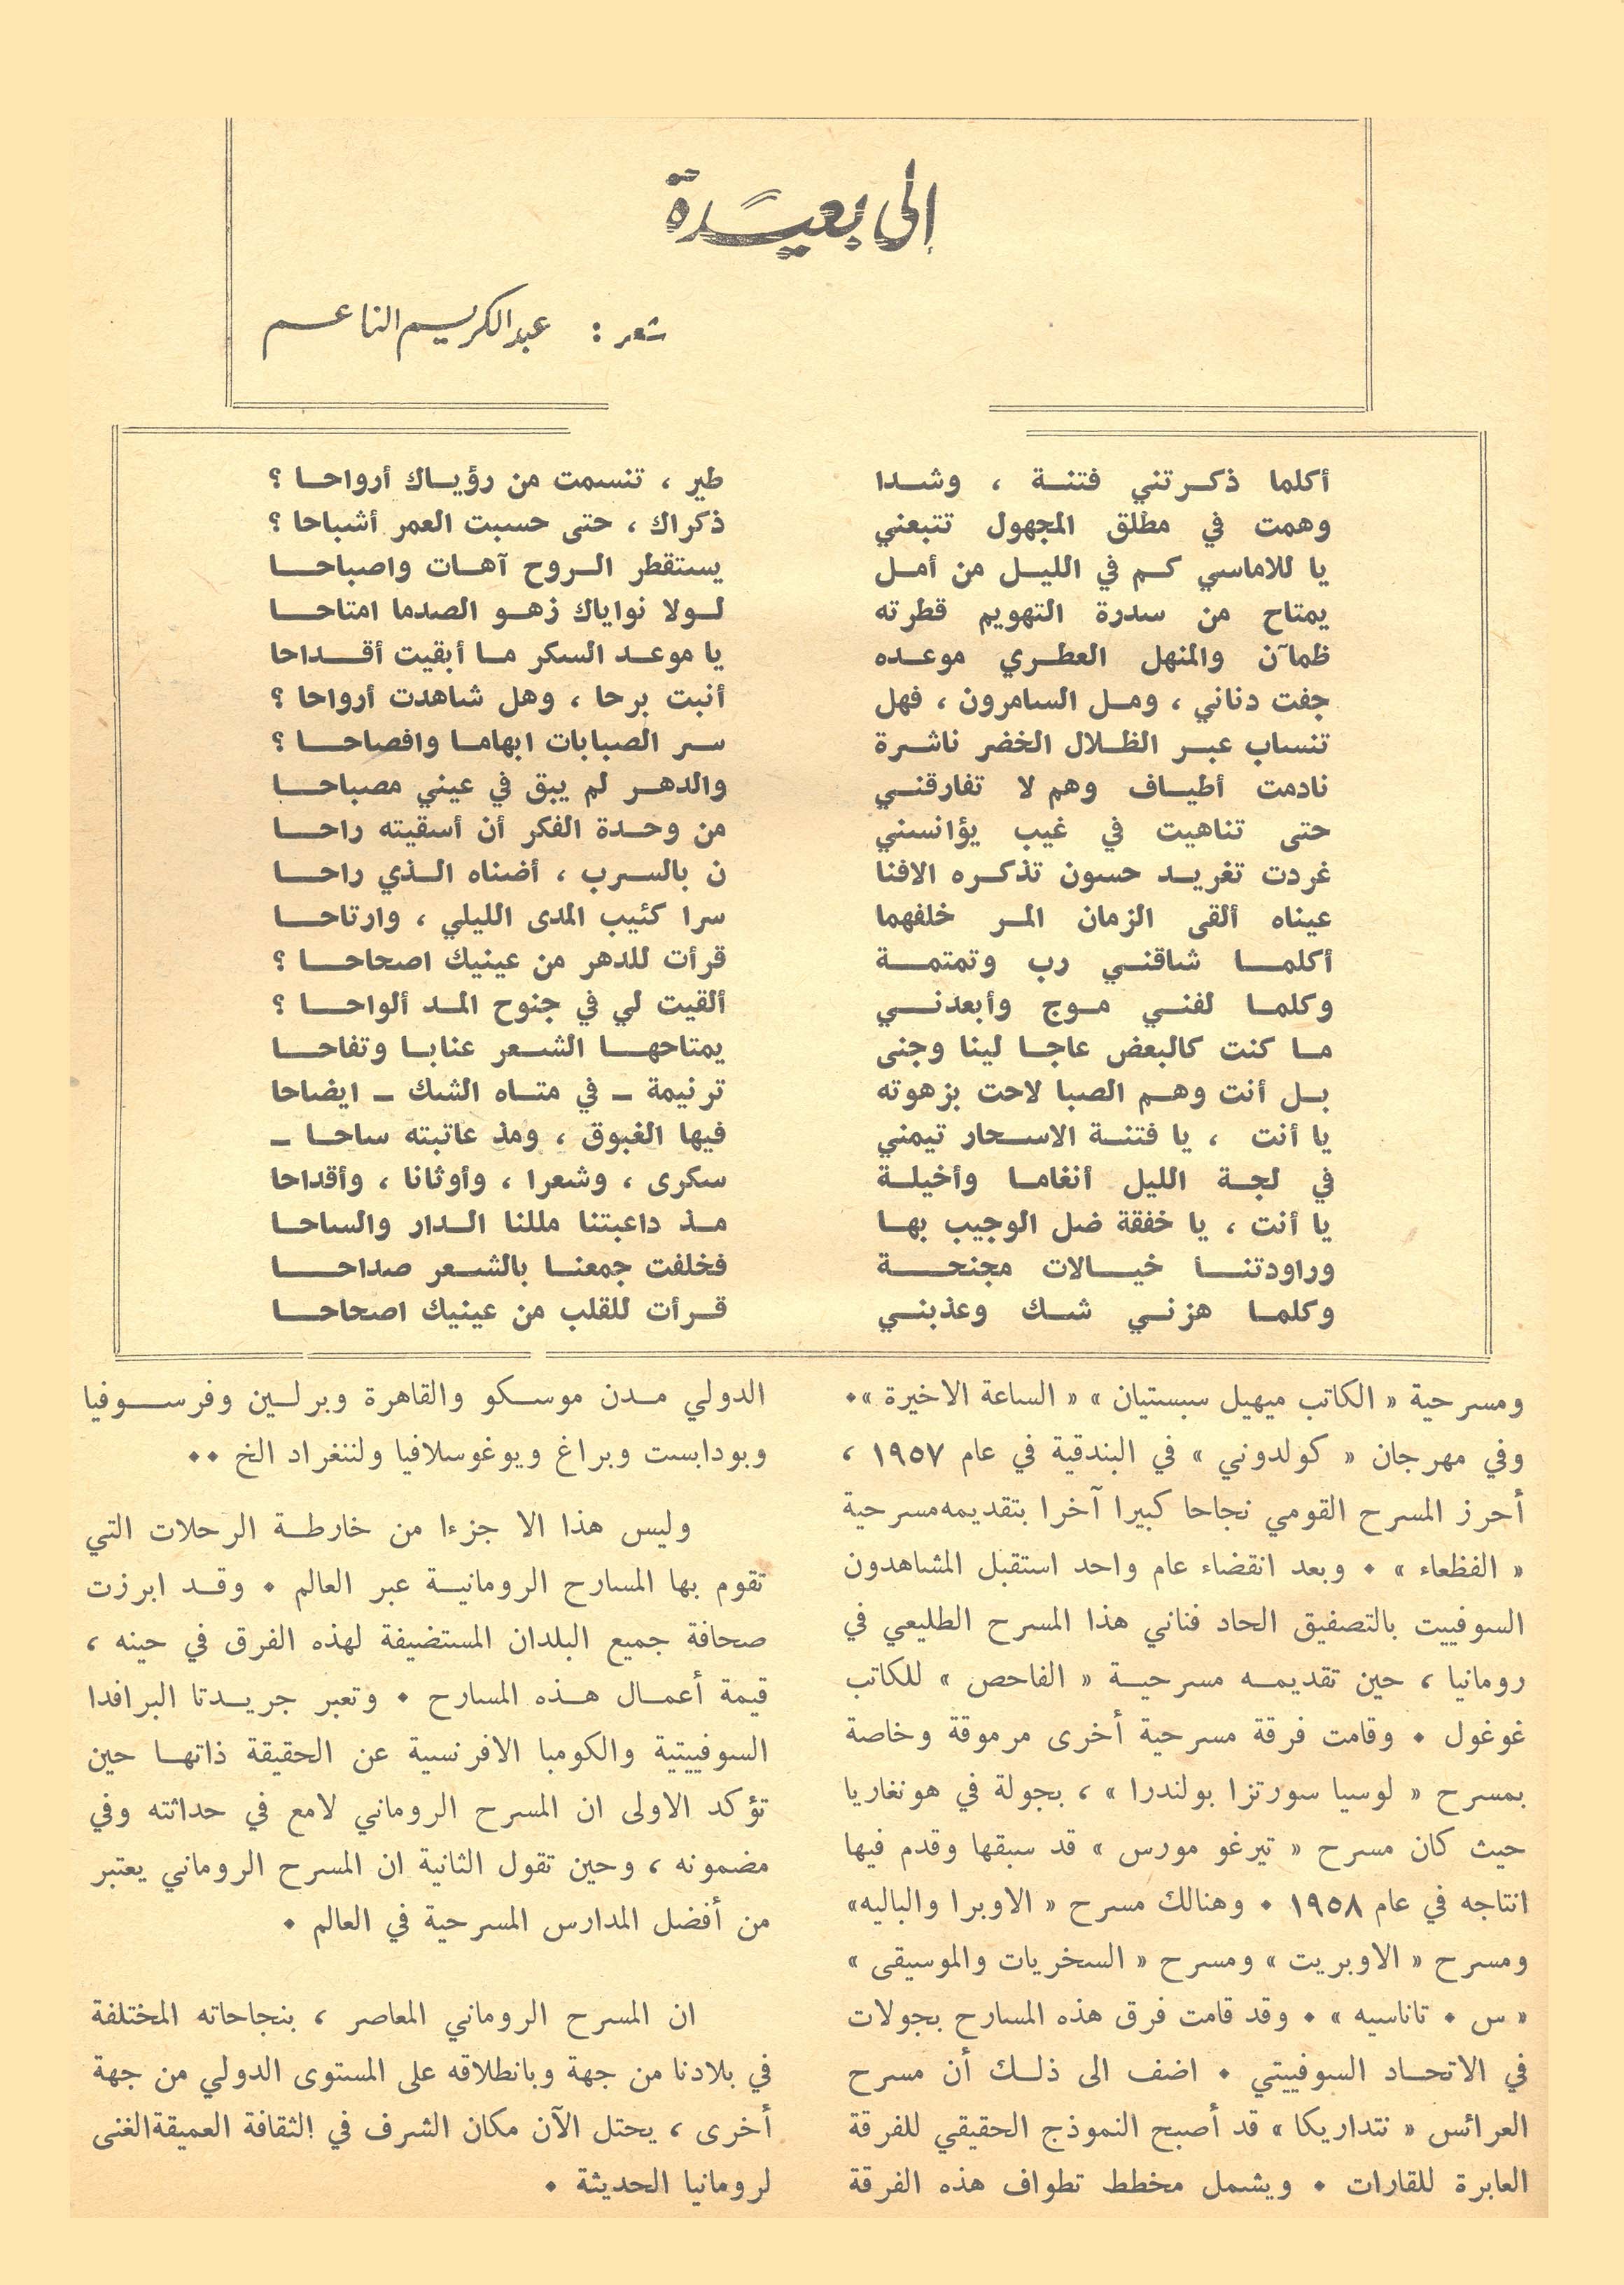 إلى بعيدة
شعر : عبد الكريم الناعم
أكلما ذكرتني فتنة ، وشدا
طير ، تنسمت من رؤياك أرواحا ؟
وهمت في مطلق المجهول تتبعني
ذكراك ، حتى حسبت العمر أشباحا ؟
يا للاماسي كم في الليل من أمل
يستقطر الروح آهات واصباحا
يمتاح من سدرة التهويم قطرته
لولا نواياك زهو الصدما امتاحا
ظمآن والمنهل العطري موعده
يا موعد السكر ما أبقيت أقداحا
جفت دناني ، ومل السامرون ، فهل
أنبت برحا ، وهل شاهدت أرواحا ؟
تنساب عبر الظلال الخضر ناشرة
سر الصبابات ابهاما وافصاحا ؟
نادمت أطياف وهم لا تفارقني
والدهر لم يبق في عيني مصباحا
حتى تناهيت في غيب يؤانسني
من وحدة الفكر أن أسقيته راحا
غردت تغريد حسون تذكره الافنا
ن بالسرب ، أضناه الذي راحا
عيناه ألقى الزمان المر خلفهما
سرا كئيب المدى الليلي ، وارتاحا
أكلما شاقني رب وتمتمة
قرأت للدهر من عينيك اصحاحا ؟
وكلما لفني موج وأبعدني
ألقيت لي في جنوح المد ألواحا ؟
ما كنت كالبعض عاجا لينا وجنى
يمتاحها الشعر عنابا وتفاحا
بل أنت وهم الصبا لاحت بزهوته
ترنيمة – في متاه الشك – ايضاحا
يا أنت ، يا فتنة الاسحار تيمني
فيها الغبوق ، ومذ عاتبته ساحا –
في لجة الليل أنغاما وأخيلة
سكرى ، وشعرا ، وأوثانا ، وأقداحا
يا أنت ، يا خفقة ضل الوجيب بها
مذ داعبتنا مللنا الدار والساحا
وراودتنا خيالات مجنحة
فخلفت جمعنا بالشعر صداحا
وكلما هزني شك وعذبني
قرأت للقلب من عينيك اصحاحا
ومسرحية « الكاتب ميهيل سبستيان » « الساعة الاخيرة »•
وفي مهرجان « كولدوني » في البندقية في عام ١٩٥٧ ،
أحرز المسرح القومي نجاحا كبيرا آخرا بتقديمه مسرحية
« الفظعاء » • وبعد انقضاء عام واحد استقبل المشاهدون
السوفييت بالتصفيق الحاد فناني هذا المسرح الطليعي في
رومانيا ، حين تقديمه مسرحية « الفاحص » للكاتب
غوغول • وقامت فرقة مسرحية أخرى مرموقة وخاصة
بمسرح « لوسيا سورتزا بولندرا » ، بجولة في هونغاريا
حيث كان مسرح « تيرغو مورس » قد سبقها وقدم فيها
انتاجه في عام ١٩٥٨ • وهنالك مسرح « الاوبرا والباليه»
ومسرح « الاوبريت » ومسرح « السخريات والموسيقى »
« س • تاناسيه » • وقد قامت فرق هذه المسارح بجولات
في الاتحاد السوفييتي • اضف الى ذلك أن مسرح
العرائس « تتداريكا » قد أصبح النموذج الحقيقي للفرقة
العابرة للقارات • ويشمل مخطط تطواف هذه الفرقة
الدولي مدن موسكو والقاهرة وبرلين وفرسوفيا
وبودابست وبراغ ويوغوسلافيا ولننغراد الخ ••
وليس هذا الا جزءا من خارطة الرحلات التي
تقوم بها المسارح الرومانية عبر العالم • وقد ابرزت
صحافة جميع البلدان المستضيفة لهذه الفرق في حينه ،
قيمة أعمال هذه المسارح • وتعبر جريدتا البرافدا
السوفييتية والكومبا الافرنسية عن الحقيقة ذاتها حين
تؤكد الاولى ان المسرح الروماني لامع في حداثته وفي
مضمونه ، وحين تقول الثانية ان المسرح الروماني يعتبر
من أفضل المدارس المسرحية في العالم •
ان المسرح الروماني المعاصر ، بنجاحاته المختلفة
في بلادنا من جهة وبانطلاقه على المستوى الدولي من جهة
أخرى ، يحتل الآن مكان الشرف في الثقافة العميقة الغنى
لرومانيا الحديثة •